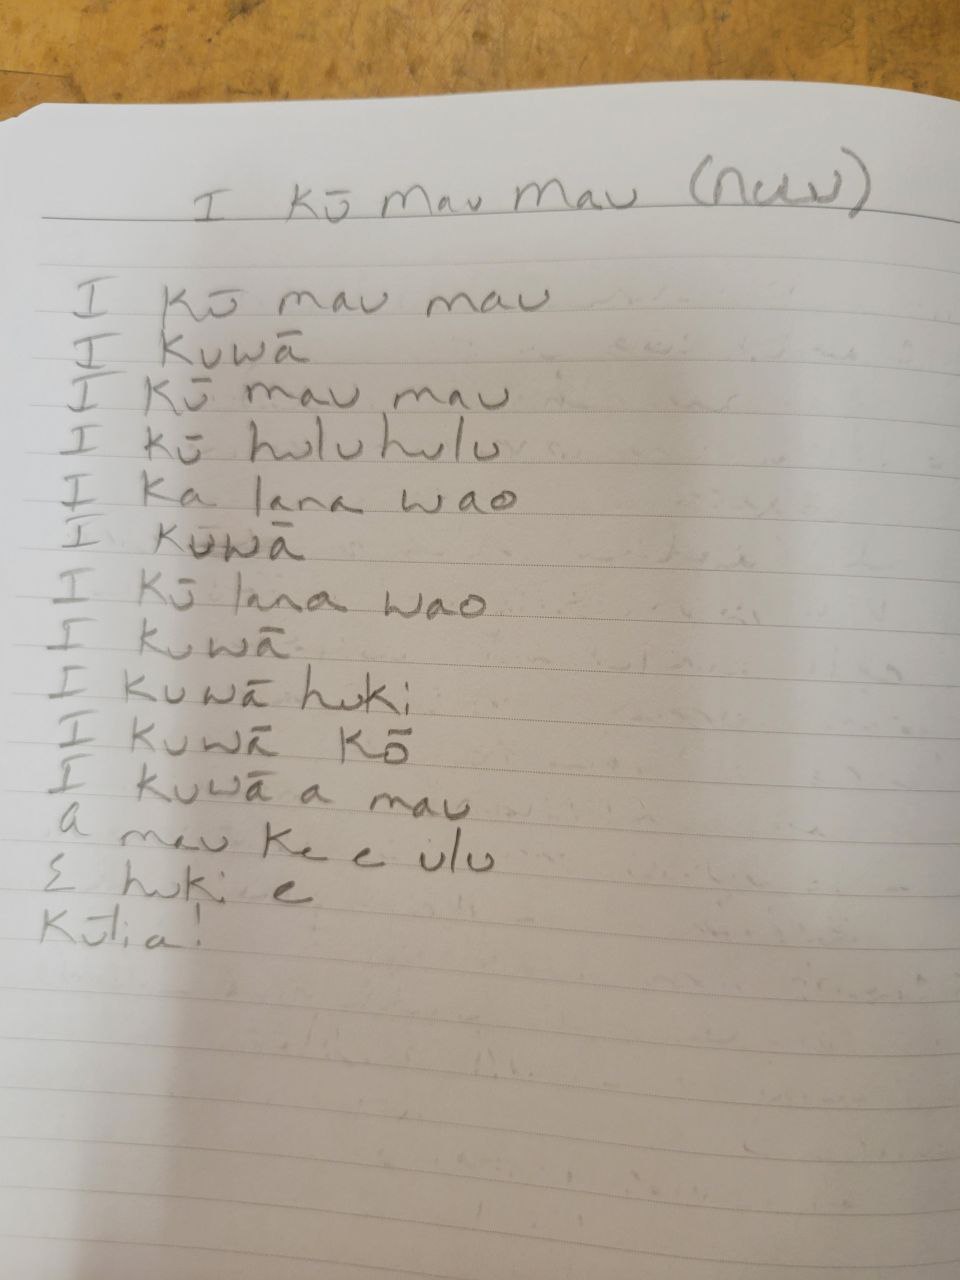 I Kū mau mau (nuu)
I Kū mau mau
I Kuwā
I Kū mau mau
I Kū hulu hulu
I Ka lana wao
I Kūwā
I Kū lana wao
I Kuwā
I Kuwā huki
I Kuwā Kō
I Kuwā a mau
a mau Ka e ulu
E huki e
Kūlia!